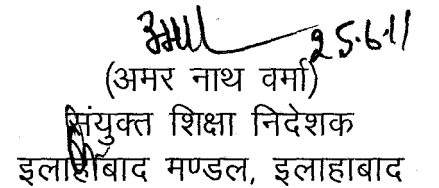 25.6.11
(अमर नाथ वर्मा)
संयुक्त शिक्षा निदेशक
इलाहाबाद मण्डल, इलाहाबाद